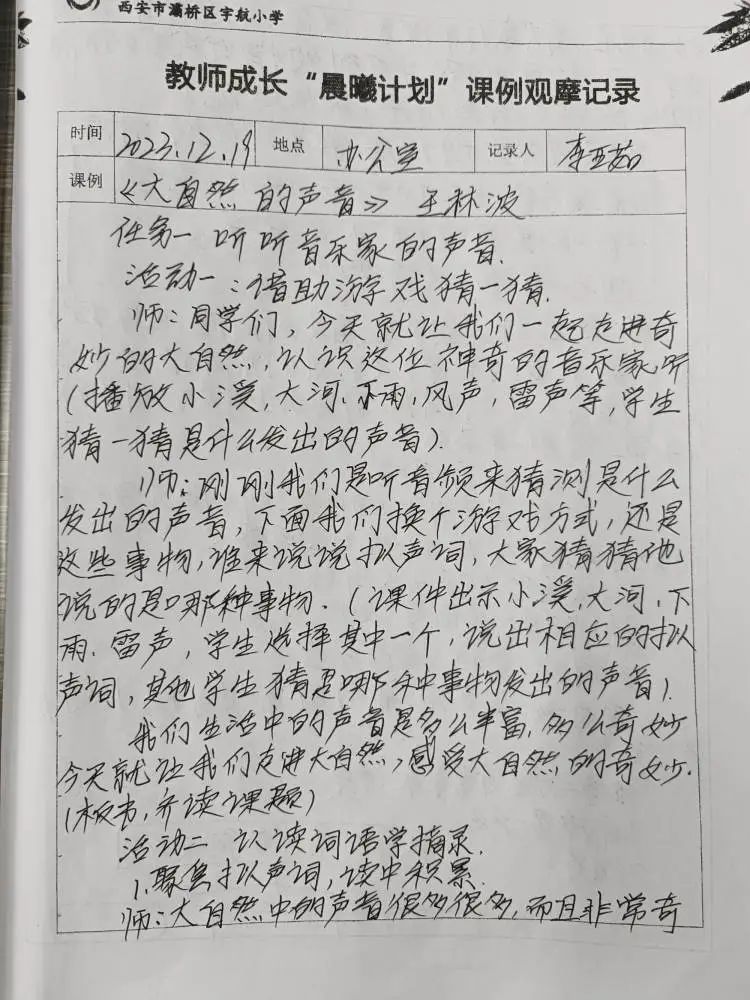 西安市灞桥区宇航小学
教师成长“晨曦计划”课例观摩记录
时间 2023.12.19 地点 办公室 记录人 李亚茹
课例 《大自然的声音》 王林波
任务一 听听音乐家的声音.
活动一:借助游戏猜一猜.
师:同学们,今天就让我们一起走进奇
妙的大自然,认识这位神奇的音乐家,听
(播放小溪,大河.下雨,风声,雷声等,学生
猜一猜是什么发出的声音).
师:刚刚我们是听音频来猜测是什么
发出的声音,下面我们换个游戏方式,还是
这些事物,谁来说说拟声词,大家猜猜他
说的是哪种事物.(课件出示小溪,大河,下
雨.雷声,学生选择其中一个,说出相应的拟
声词,其他学生猜是哪种事物发出的声音).
我们生活中的声音是多么丰富,多么奇妙
今天就让我们走进大自然,感受大自然的奇妙.
(板书,齐读课题)
活动二 认读词语学摘录.
1.聚焦拟声词,读中积累
师:大自然中的声音很多很多,而且非常奇